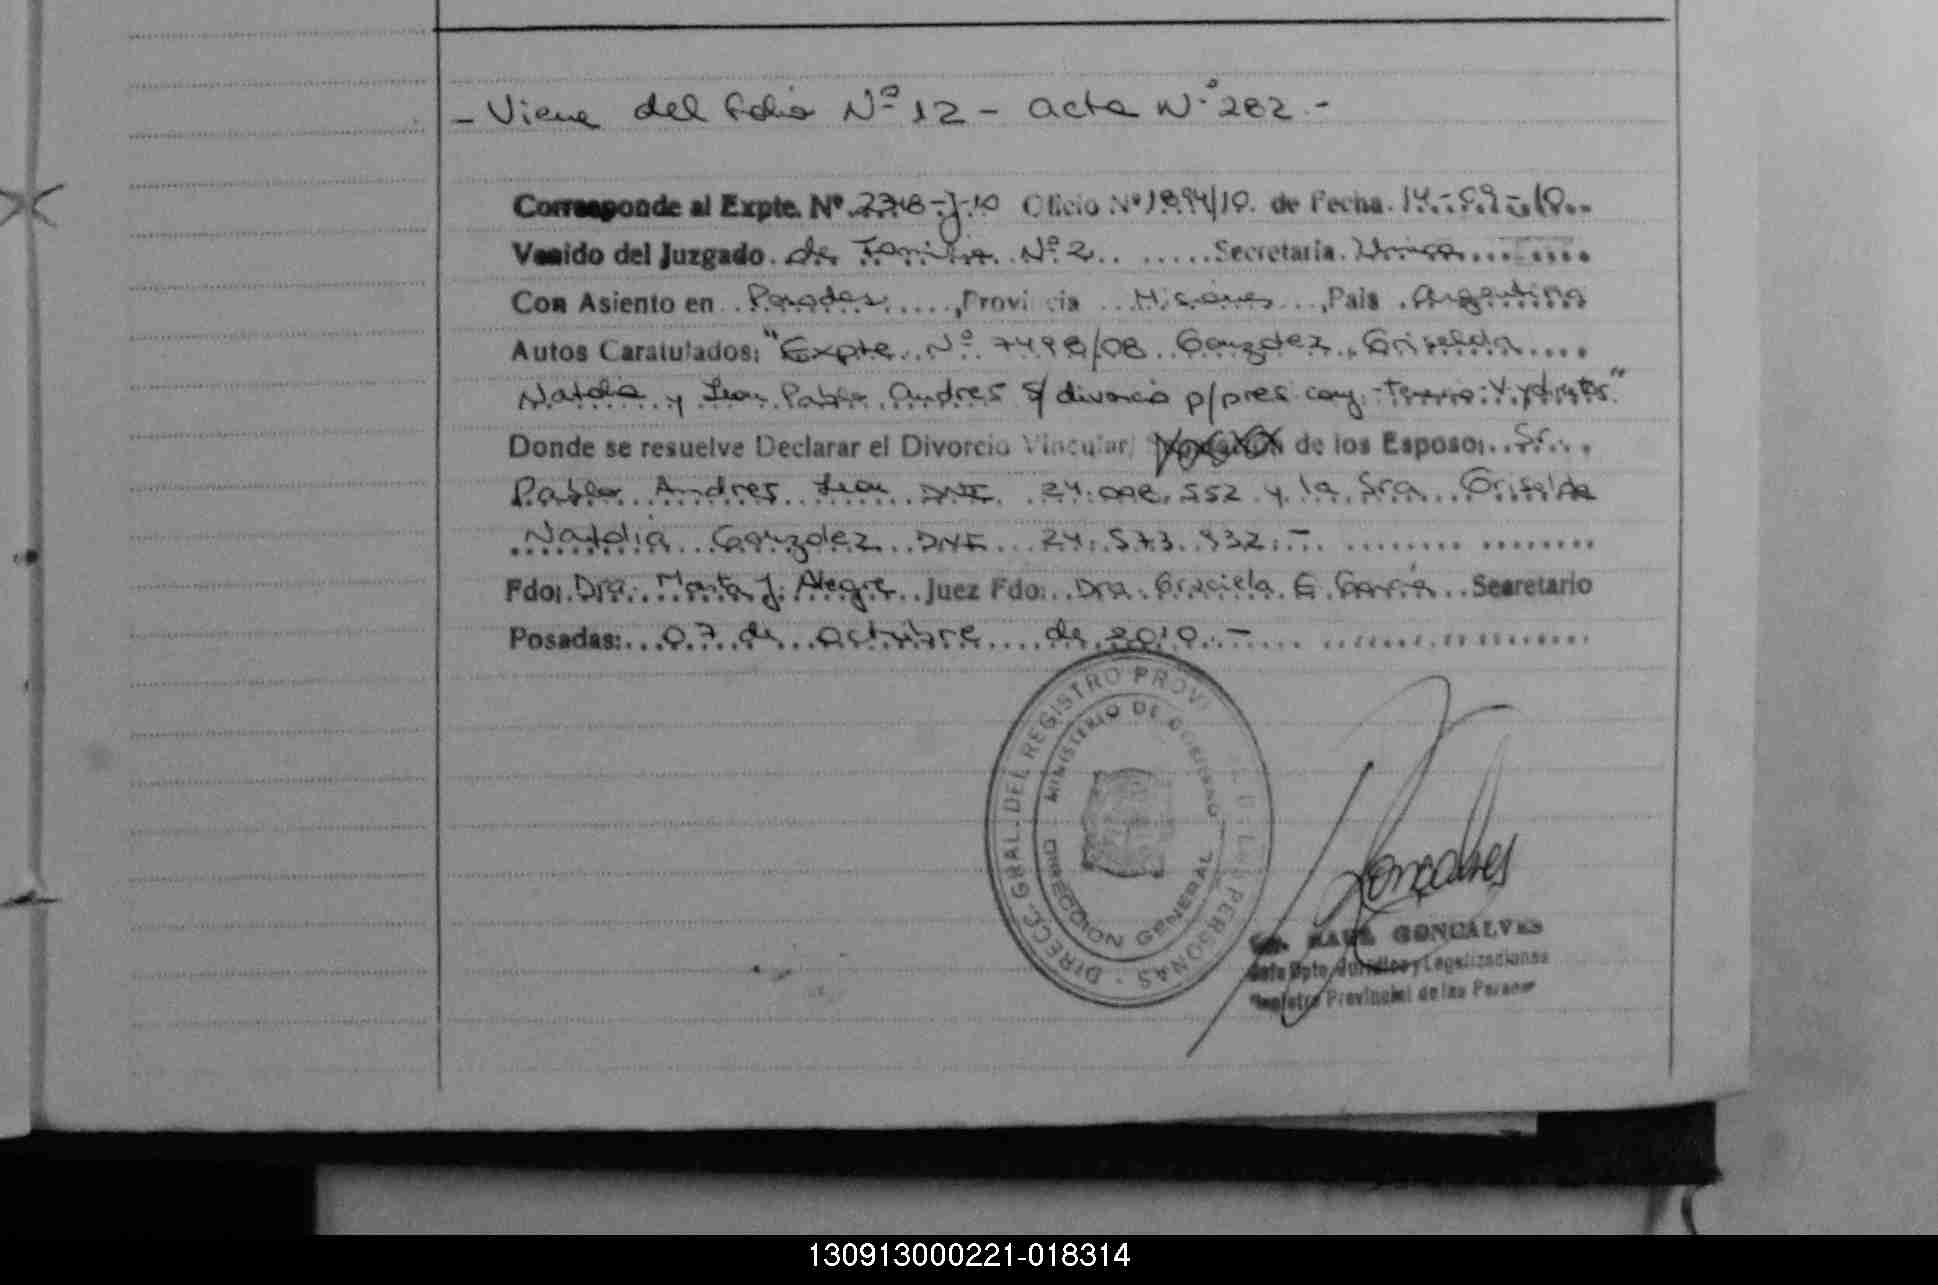 - Viene del folio Nº 12 - acta Nº 282.-
Corresponde al Expte. Nº 2348-J-10 Oficio Nº 1894/10. de Fecha. 14-09-10...
Venido del Juzgado. de Familia Nº 2.. .....Secretaria. Unica........
Con Asiento en ..Posadas......,Provincia ...Misiones...,Pais .Argentina
Autos Caratulados: "Expte. Nº 7498/08 Gonzalez, Griselda....
Natalia y Leon Pablo Andres S/ divorcio p/pres. conj.
Donde se resuelve Declarar el Divorcio Vincular/ de los Esposo:..Sr...
Pablo Andres Leon DNI. 24.098.552 y la Sra. Griselda
Natalia Gonzalez DNI 24.573.932.-... ........ ........
Fdo: Dra. Marta J. Alegre..Juez Fdo:..Dra. Graciela E. García...Secretario
Posadas:...07 de octubre de 2010.-
DIRECC. GRAL. DEL REGISTRO PROVI DE LAS PERSONAS
MINISTERIO DE GOBIERNO
DIRECCION GENERAL
Goncalves
RAUL GONCALVES
Jefe Dpto. Jurídico y Legalizaciones
Registro Provincial de las Personas
130913000221-018314